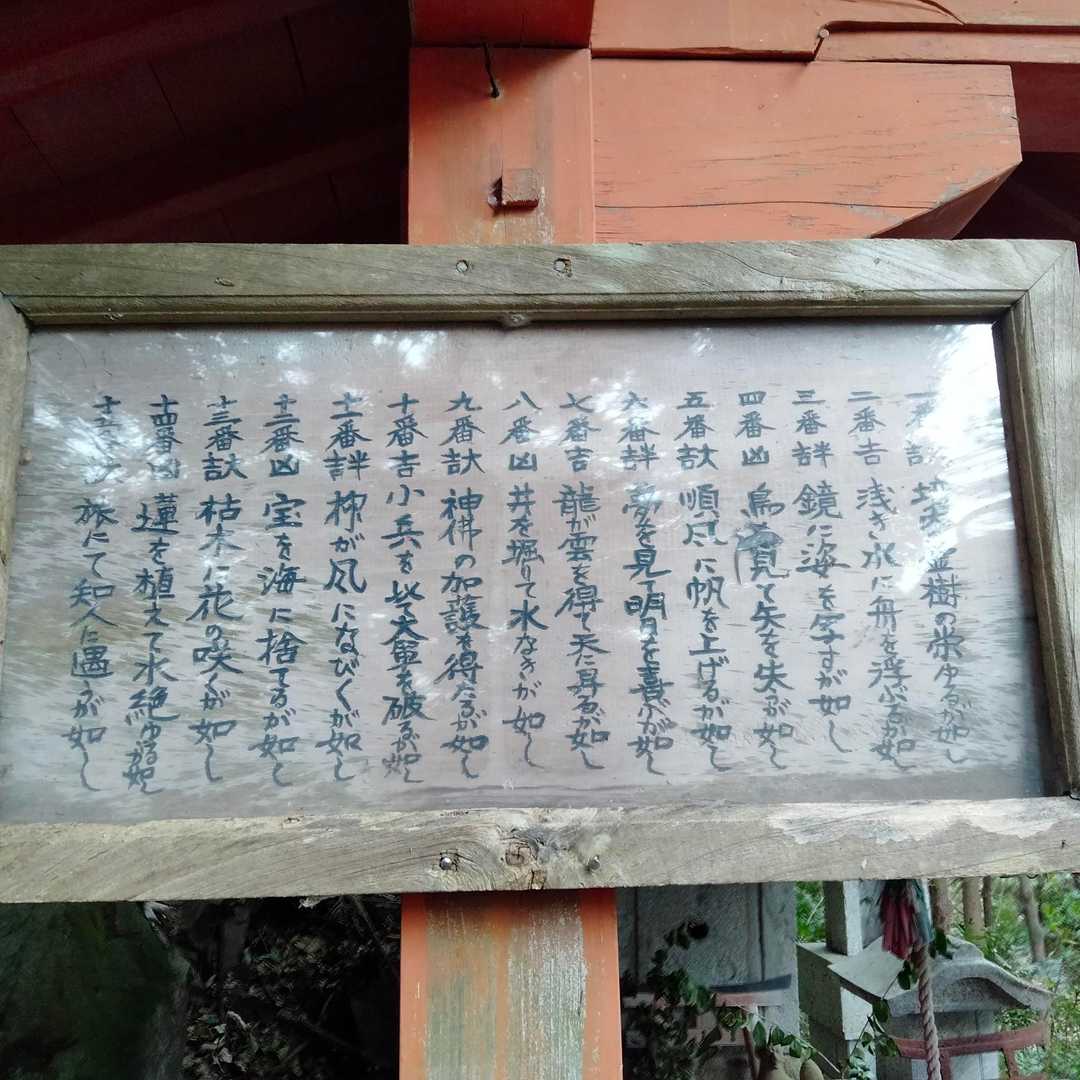 一番 増 金樹の栄ゆるが如し
二番吉 浅き水に舟を浮ぶるが如し
三番絆 鏡に姿を写すが如し
四番凶 鳥 見て矢を失ふが如し
五番 順風に帆を上げるが如し
六番絆 夢を見て明日を喜ぶが如し
七番吉 龍が雲を得て天に昇るが如し
八番凶 井を堀りて水なきが如し
九番 神佛の加護を得たるが如し
十番吉 小兵を以て大軍を破るが如し
十一番絆 柳が風になびくが如し
十二番凶 宝を海に捨てるが如し
十三番 枯木に花の咲くが如し
十四番凶 蓮を植えて水絶ゆるが如し
十五 旅にて知人に遇うが如し